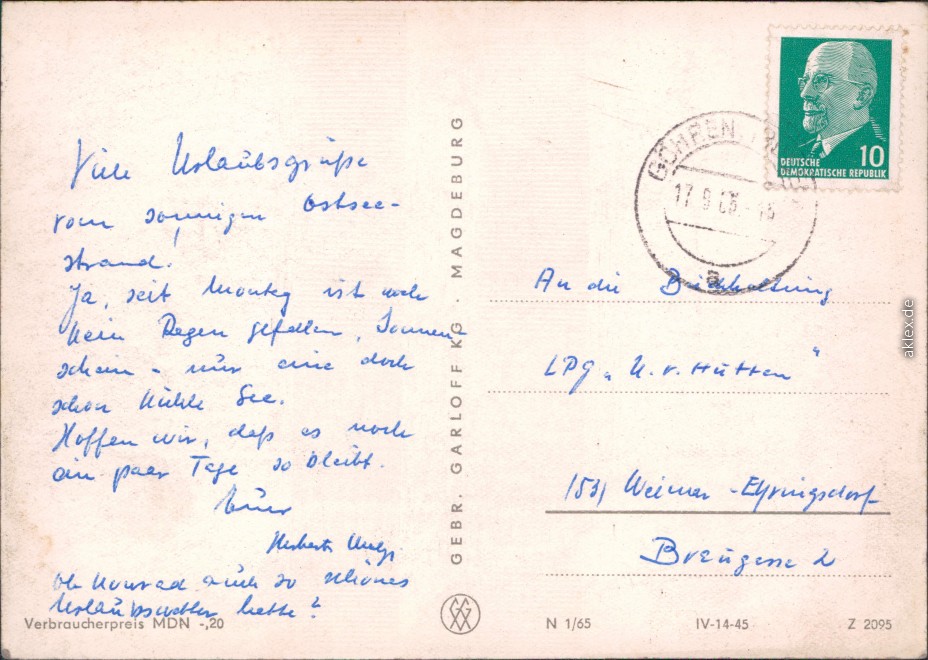 Viele Urlaubsgrüße
vom sonnigen Ostsee-
strand!
Ja, seit Montag ist noch
kein Regen gefallen, Sonnen-
schein - nur eine doch
schon kühle See.
Hoffen wir, daß es noch
ein paar Tage so bleibt.
Euer
Herbert
Ob Konrad auch so schönes
Urlaubswetter hatte?
Verbraucherpreis MDN -,20
GEBR. GARLOFF KG. MAGDEBURG
DEUTSCHE
DEMOKRATISCHE REPUBLIK
10
GÖHREN
17.9.65
a
An die Buchhaltung
LPG „U. v. Hutten"
(53) Weimar - Ehringsdorf
Braugasse 2
N 1/65
IV-14-45
Z 2095
aklex.de